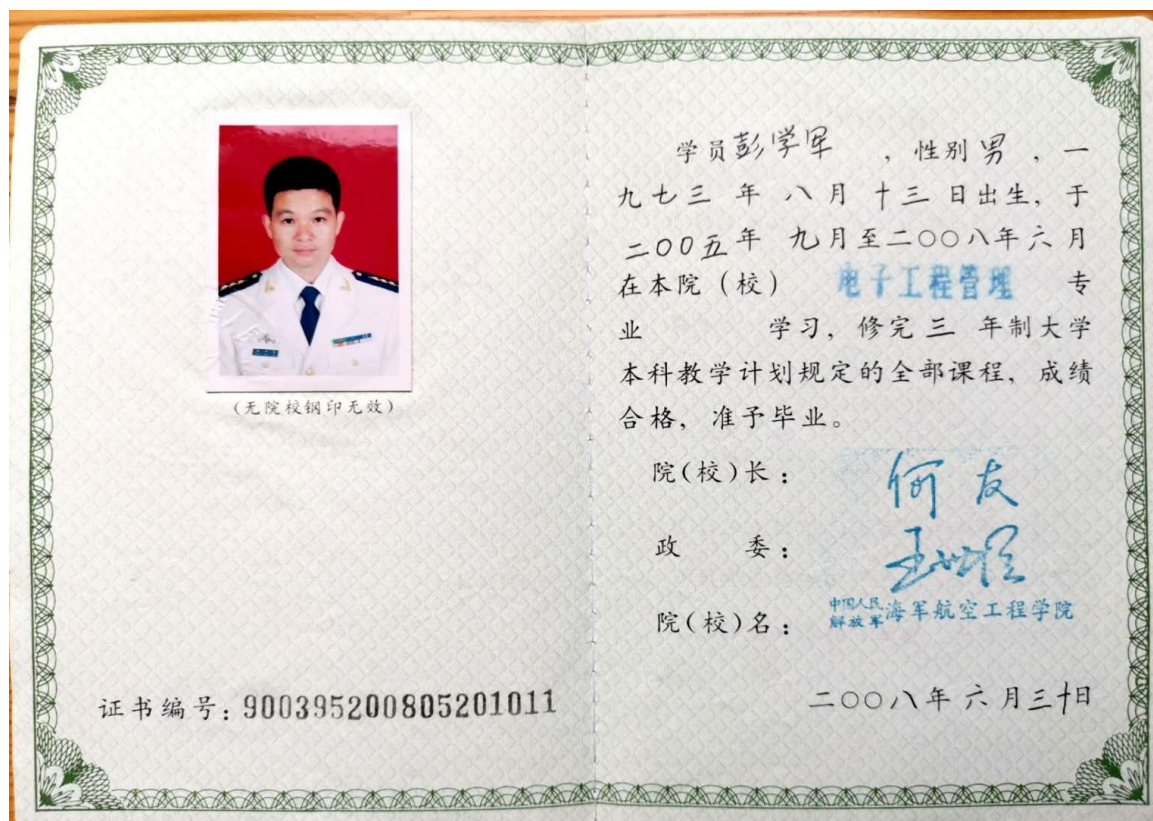 (无院校钢印无效)
证书编号:900395200805201011
学员彭学军 ,性别男 ,一
九七三 年 八月 十三 日出生,于
二〇〇五年 九月至二〇〇八年六月
在本院(校) 电子工程管理 专
业 学习,修完 三 年制大学
本科教学计划规定的全部课程,成绩
合格,准予毕业。
院(校)长: 何友
政 委:
院(校)名: 中国人民解放军海军航空工程学院
二〇〇八年 六 月三十日